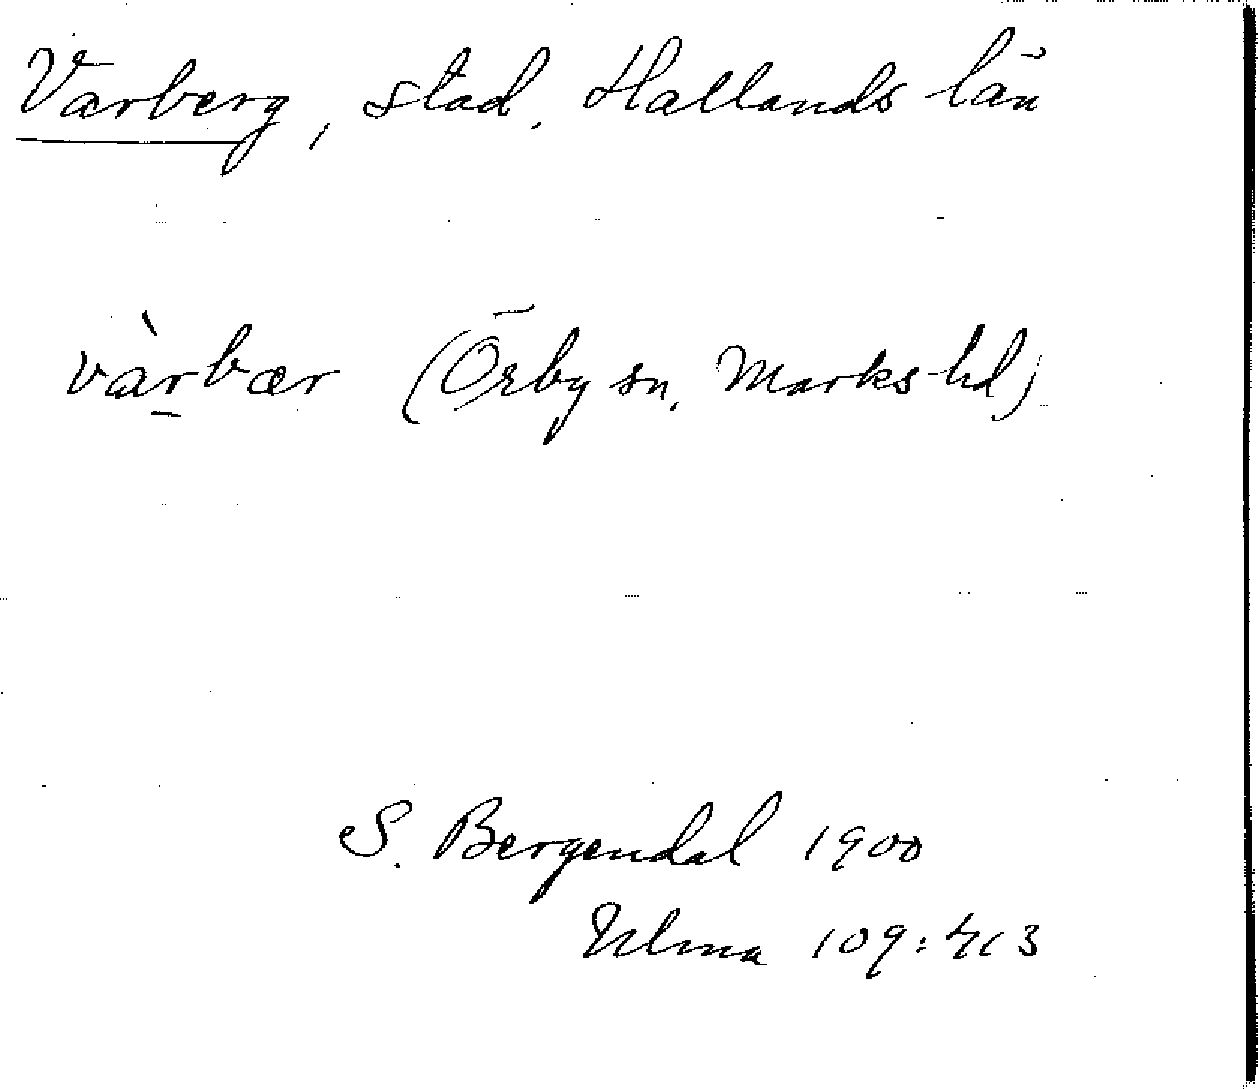 Varberg, stad, Hallands län
vàr̲bær (Örby sn, Marks hd)
S. Bergendal 1900
Ulma 109:413